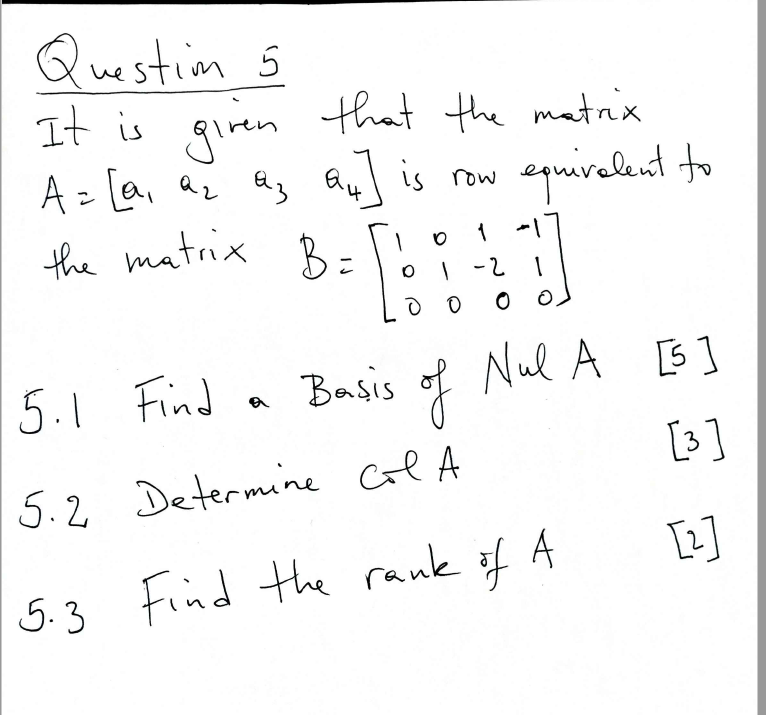 Question 5
It is given that the matrix
A = [a₁ a₂ a₃ a₄] is row equivalent to
the matrix B = [1 0 1 -1
0 1 -2 1
0 0 0 0]
5.1 Find a Basis of Nul A [5]
5.2 Determine Col A [3]
5.3 Find the rank of A [2]